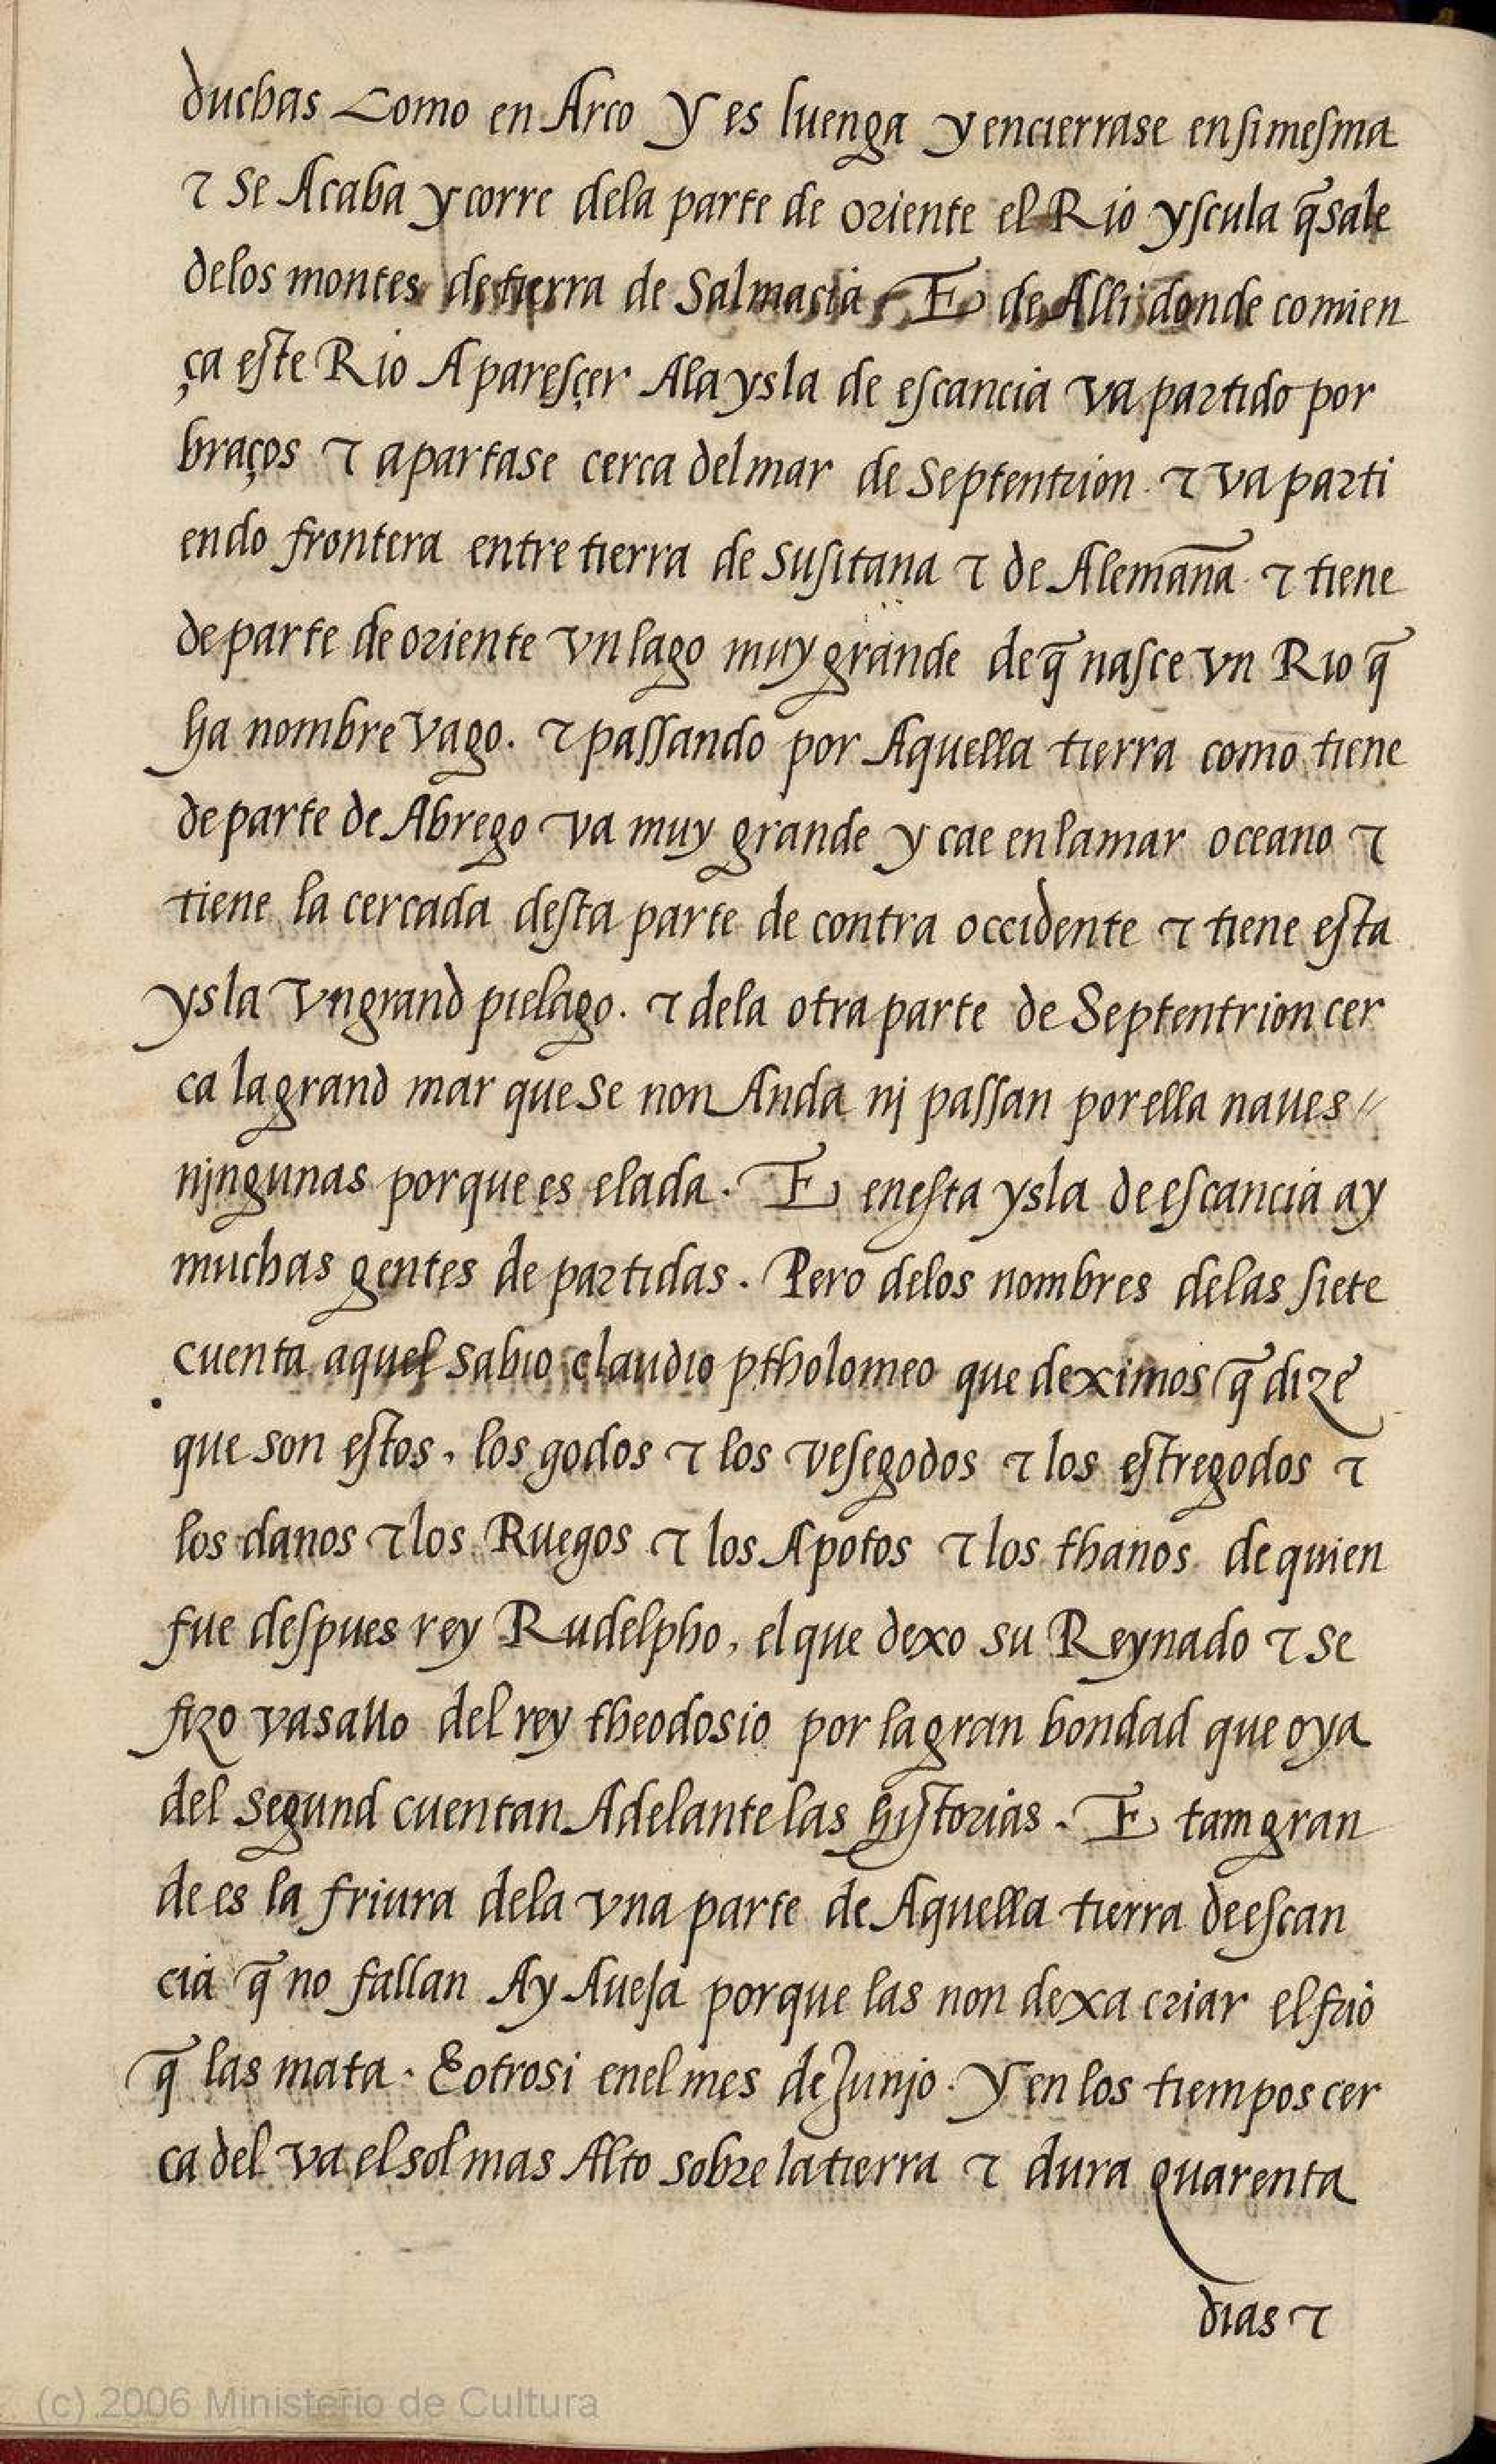 duchas Como en Arco Y es luenga y encierrase en si mesma
⁊ se Acaba y corre dela parte de oriente el Rio yscula q̄ sale
delos montes de tierra de Salmacia E de Alli donde comien
ça este Rio A paresçer Ala ysla de escancia va partido por
braços ⁊ apartase cerca del mar de Septentrion. ⁊ va parti
endo frontera entre tierra de susitana ⁊ de Alemāna. ⁊ tiene
de parte de oriente vn lago muy grande de q̄ nasce vn Rio q̄
ha nombre vago. ⁊ passando por Aquella tierra como tiene
de parte de Abrego va muy grande y cae en la mar oceano ⁊
tiene la cercada desta parte de contra occidente ⁊ tiene esta
ysla vn grand pielago. ⁊ dela otra parte de Septentrion cer
ca la grand mar que se non Anda nj passan por ella naues //
njngunas porque es elada. E en esta ysla de escancia ay
muchas gentes de partidas. Pero delos nombres delas siete
cuenta aquel sabio claudio ptholomeo que deximos q̄ dize
que son estos, los godos ⁊ los vesegodos ⁊ los estregodos ⁊
los danos ⁊ los Ruegos ⁊ los Apotos ⁊ los thanos de quien
fue despues rey Rudelpho, el que dexo su Reynado ⁊ se
fizo vasallo del rey theodosio por la gran bondad que oya
del segund cuentan Adelante las hystorias. E tam gran
de es la friura dela vna parte de Aquella tierra de escan
cia q̄ no fallan Ay Aueja porque las non dexa criar el frio
q̄ las mata. E otrosi en el mes de Junjo. Y en los tiempos cer
ca del va el sol mas Alto sobre la tierra ⁊ dura quarenta
dias ⁊
(c) 2006 Ministerio de Cultura